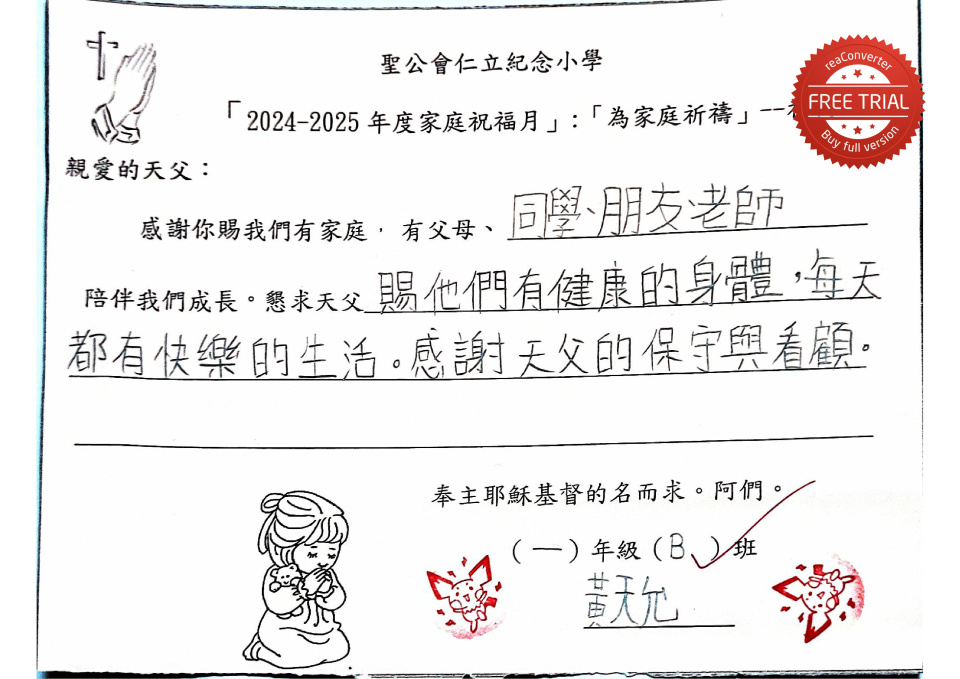 聖公會仁立紀念小學
「2024-2025 年度家庭祝福月」:「為家庭祈禱」--
reaConverter
FREE TRIAL
Buy full version
親愛的天父:
感謝你賜我們有家庭,有父母、同學、朋友、老師
陪伴我們成長。懇求天父賜他們有健康的身體,每天
都有快樂的生活。感謝天父的保守與看顧。
奉主耶穌基督的名而求。阿們。
(一)年級(B)班
黃天允